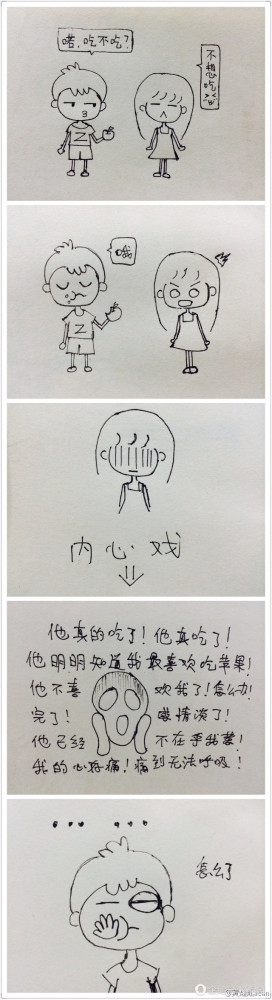 喏,吃不吃?
不想吃
Z
哦
Z
内心戏
他真的吃了!他真吃了!
他明明知道我最喜欢吃苹果!
他不喜 欢我了!怎么办!
完了! 感情淡了!
他已经 不在乎我了!
我的心好痛!痛到无法呼吸!
怎么了